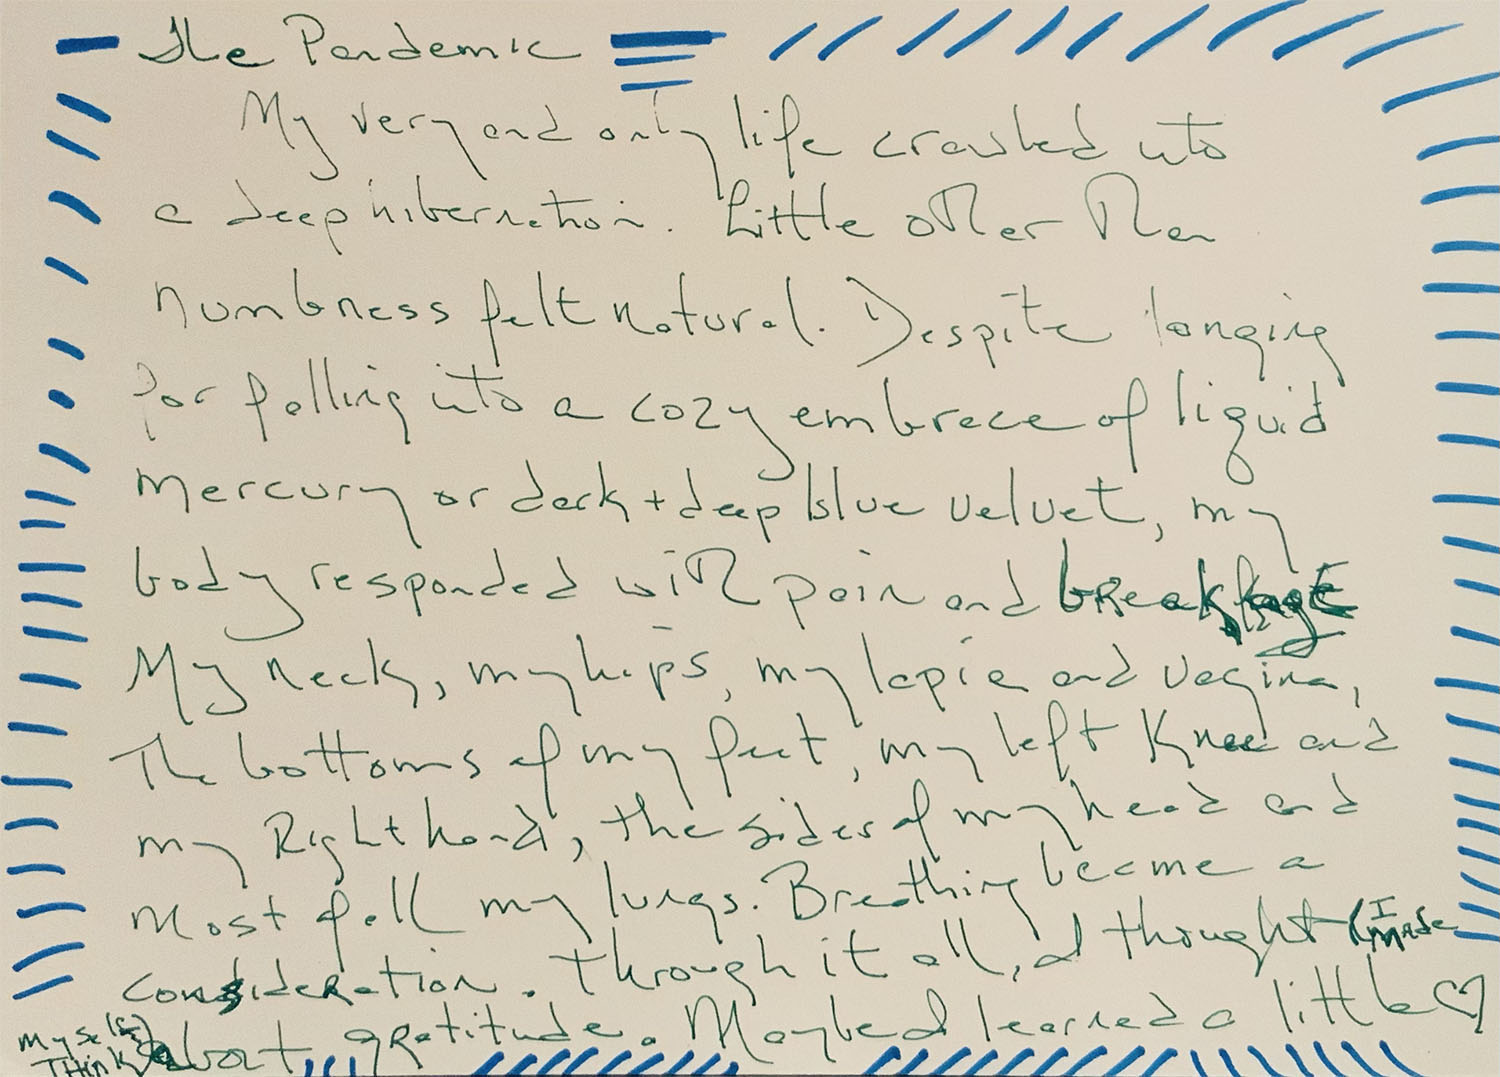 The Pandemic
My very and only life crawled into
a deep hibernation. Little other than
numbness felt natural. Despite longing
for falling into a cozy embrace of liquid
mercury or dark + deep blue velvet, my
body responded with pain and breakage
My neck, my hips, my labia and vagina,
the bottoms of my feet, my left knee and
my Right hand, the sides of my head and
most of all my lungs. Breathing became a
consideration. Through it all, I thought (I made
myself think) about gratitude. Maybe I learned a little ♡